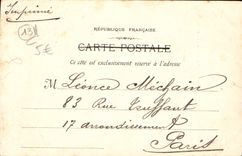 Imprimé
13
5€
RÉPUBLIQUE FRANÇAISE
CARTE POSTALE
Ce côté est exclusivement réservé à l'adresse
M. Léonce Méchain
83 Rue Truffaut
17 arrondissement
Paris